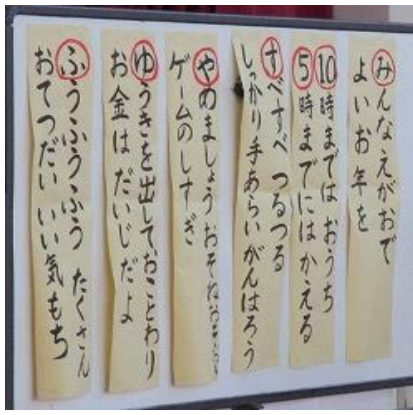 みんなえがおで
よいお年を
10時まではおうち
5時までにはかえる
すべすべ つるつる
しっかり手あらいがんばろう
やめましょう
ゲームのしすぎ
ゆうきを出しておことわり
お金はだいじだよ
ふうふうふう たくさん
おてつだい いい気もち